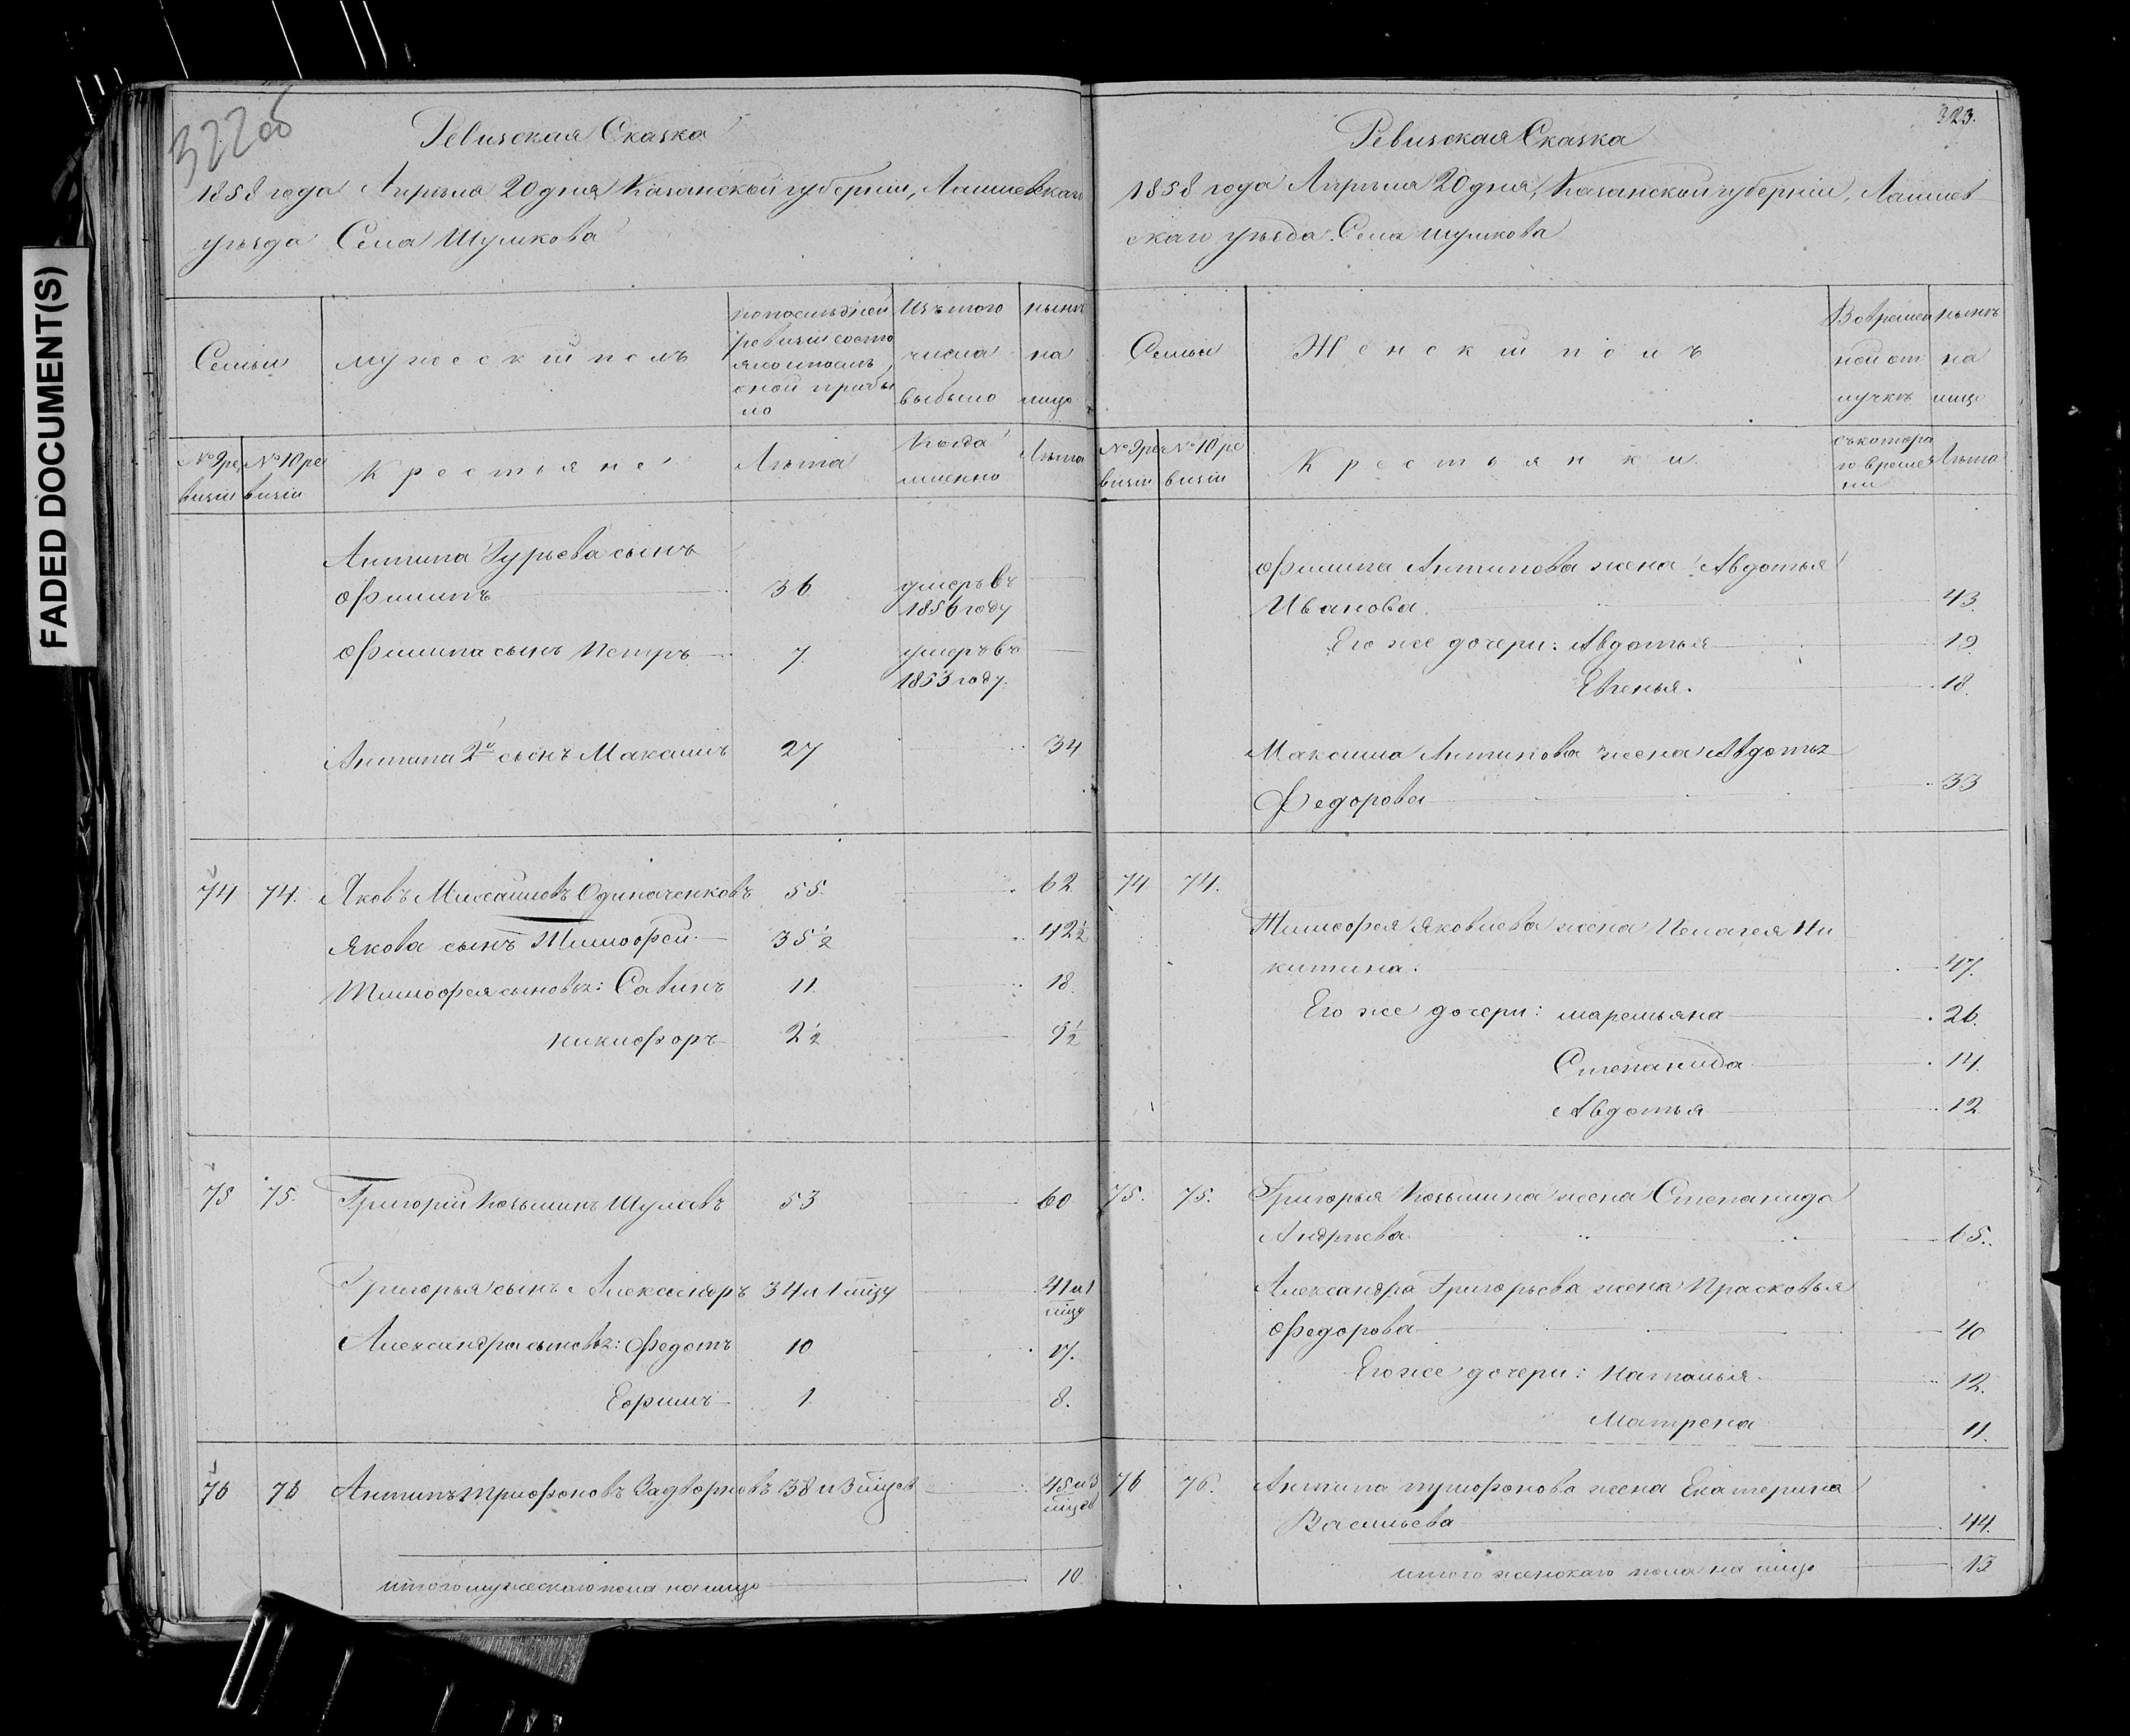 FADED DOCUMENT(S)
322об
Ревизская Сказка
1858 года Апрѣля 20 дня Казанской губерніи, Лаишевскаго
уѣзда Села Шумкова
Семьи
мужеский полъ
по послѣдней
ревизіи состо
яло и послѣ
оной прибы
ло
Изъ того
числа
выбыло
нынѣ
на
лицо
№ 9 ре
визіи
№ 10 ре
визіи
Крестьяне
Лѣта
Когда
именно
Лѣта
Антипа Гурьева сынъ
Филипъ 36 умеръ въ
1856 году
Филипа сынъ Петръ 7. умеръ въ
1853 году.
Антипа 2й сынъ Максимъ 27 34
74 74. Яковъ Михайловъ Одиначенковъ 55. 62
Якова сынъ Тимофей 35 1/2 42 1/2
Тимофея сыновья: Савинъ 11 18
Никифоръ 2 1/2 9 1/2
75 75. Григорій Козьминъ Шумовъ 53 60
Григорья сынъ Александръ 34 и 1 мцу 41 и 1
мцу
Александра сыновья: Федотъ 10 17.
Ефимъ 1 8.
76 76 Антипъ Трифоновъ Задворновъ 38 и 3 мцов 45 и 3
мцов
итого мужескаго пола на лицо 10.
323.
Ревизская Сказка
1858 года Апрѣля 20 дня, Казанской губерніи, Лаишев
скаго уѣзда. Села Шумкова
Семьи
Женский полъ
Во времен
ной от
лучкѣ
нынѣ
на
лицо
№ 9 ре
визіи
№ 10 ре
визіи
Крестьянки
съ котора
го време
ни
Лѣта
Филипа Антипова жена Авдотья
Иванова 43.
Его же дочери: Авдотья 19
Евгенья. 18.
Максима Антипова жена Авдотья
Федорова 33
74 74.
Тимофея Яковлева жена Пелагея Ни
китина. 47.
Его же дочери: Маремьяна 26.
Степанида 14.
Авдотья 12
75. 75. Григорья Козьмина жена Степанида
Андреева 65.
Александра Григорьева жена Прасковья
Федорова 40
Его же дочери: Наталья 12.
Матрена 11.
76 76. Антипа Трифонова жена Екатерина
Васильева 44.
итого женскаго пола на лицо 13